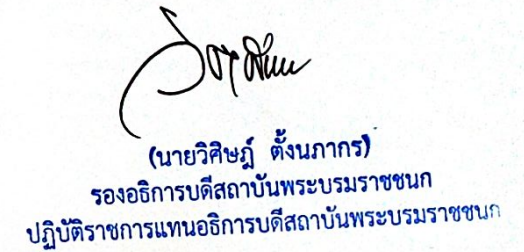 (นายวิศิษฎ์ ตั้งนภากร)
รองอธิการบดีสถาบันพระบรมราชชนก
ปฏิบัติราชการแทนอธิการบดีสถาบันพระบรมราชชนก